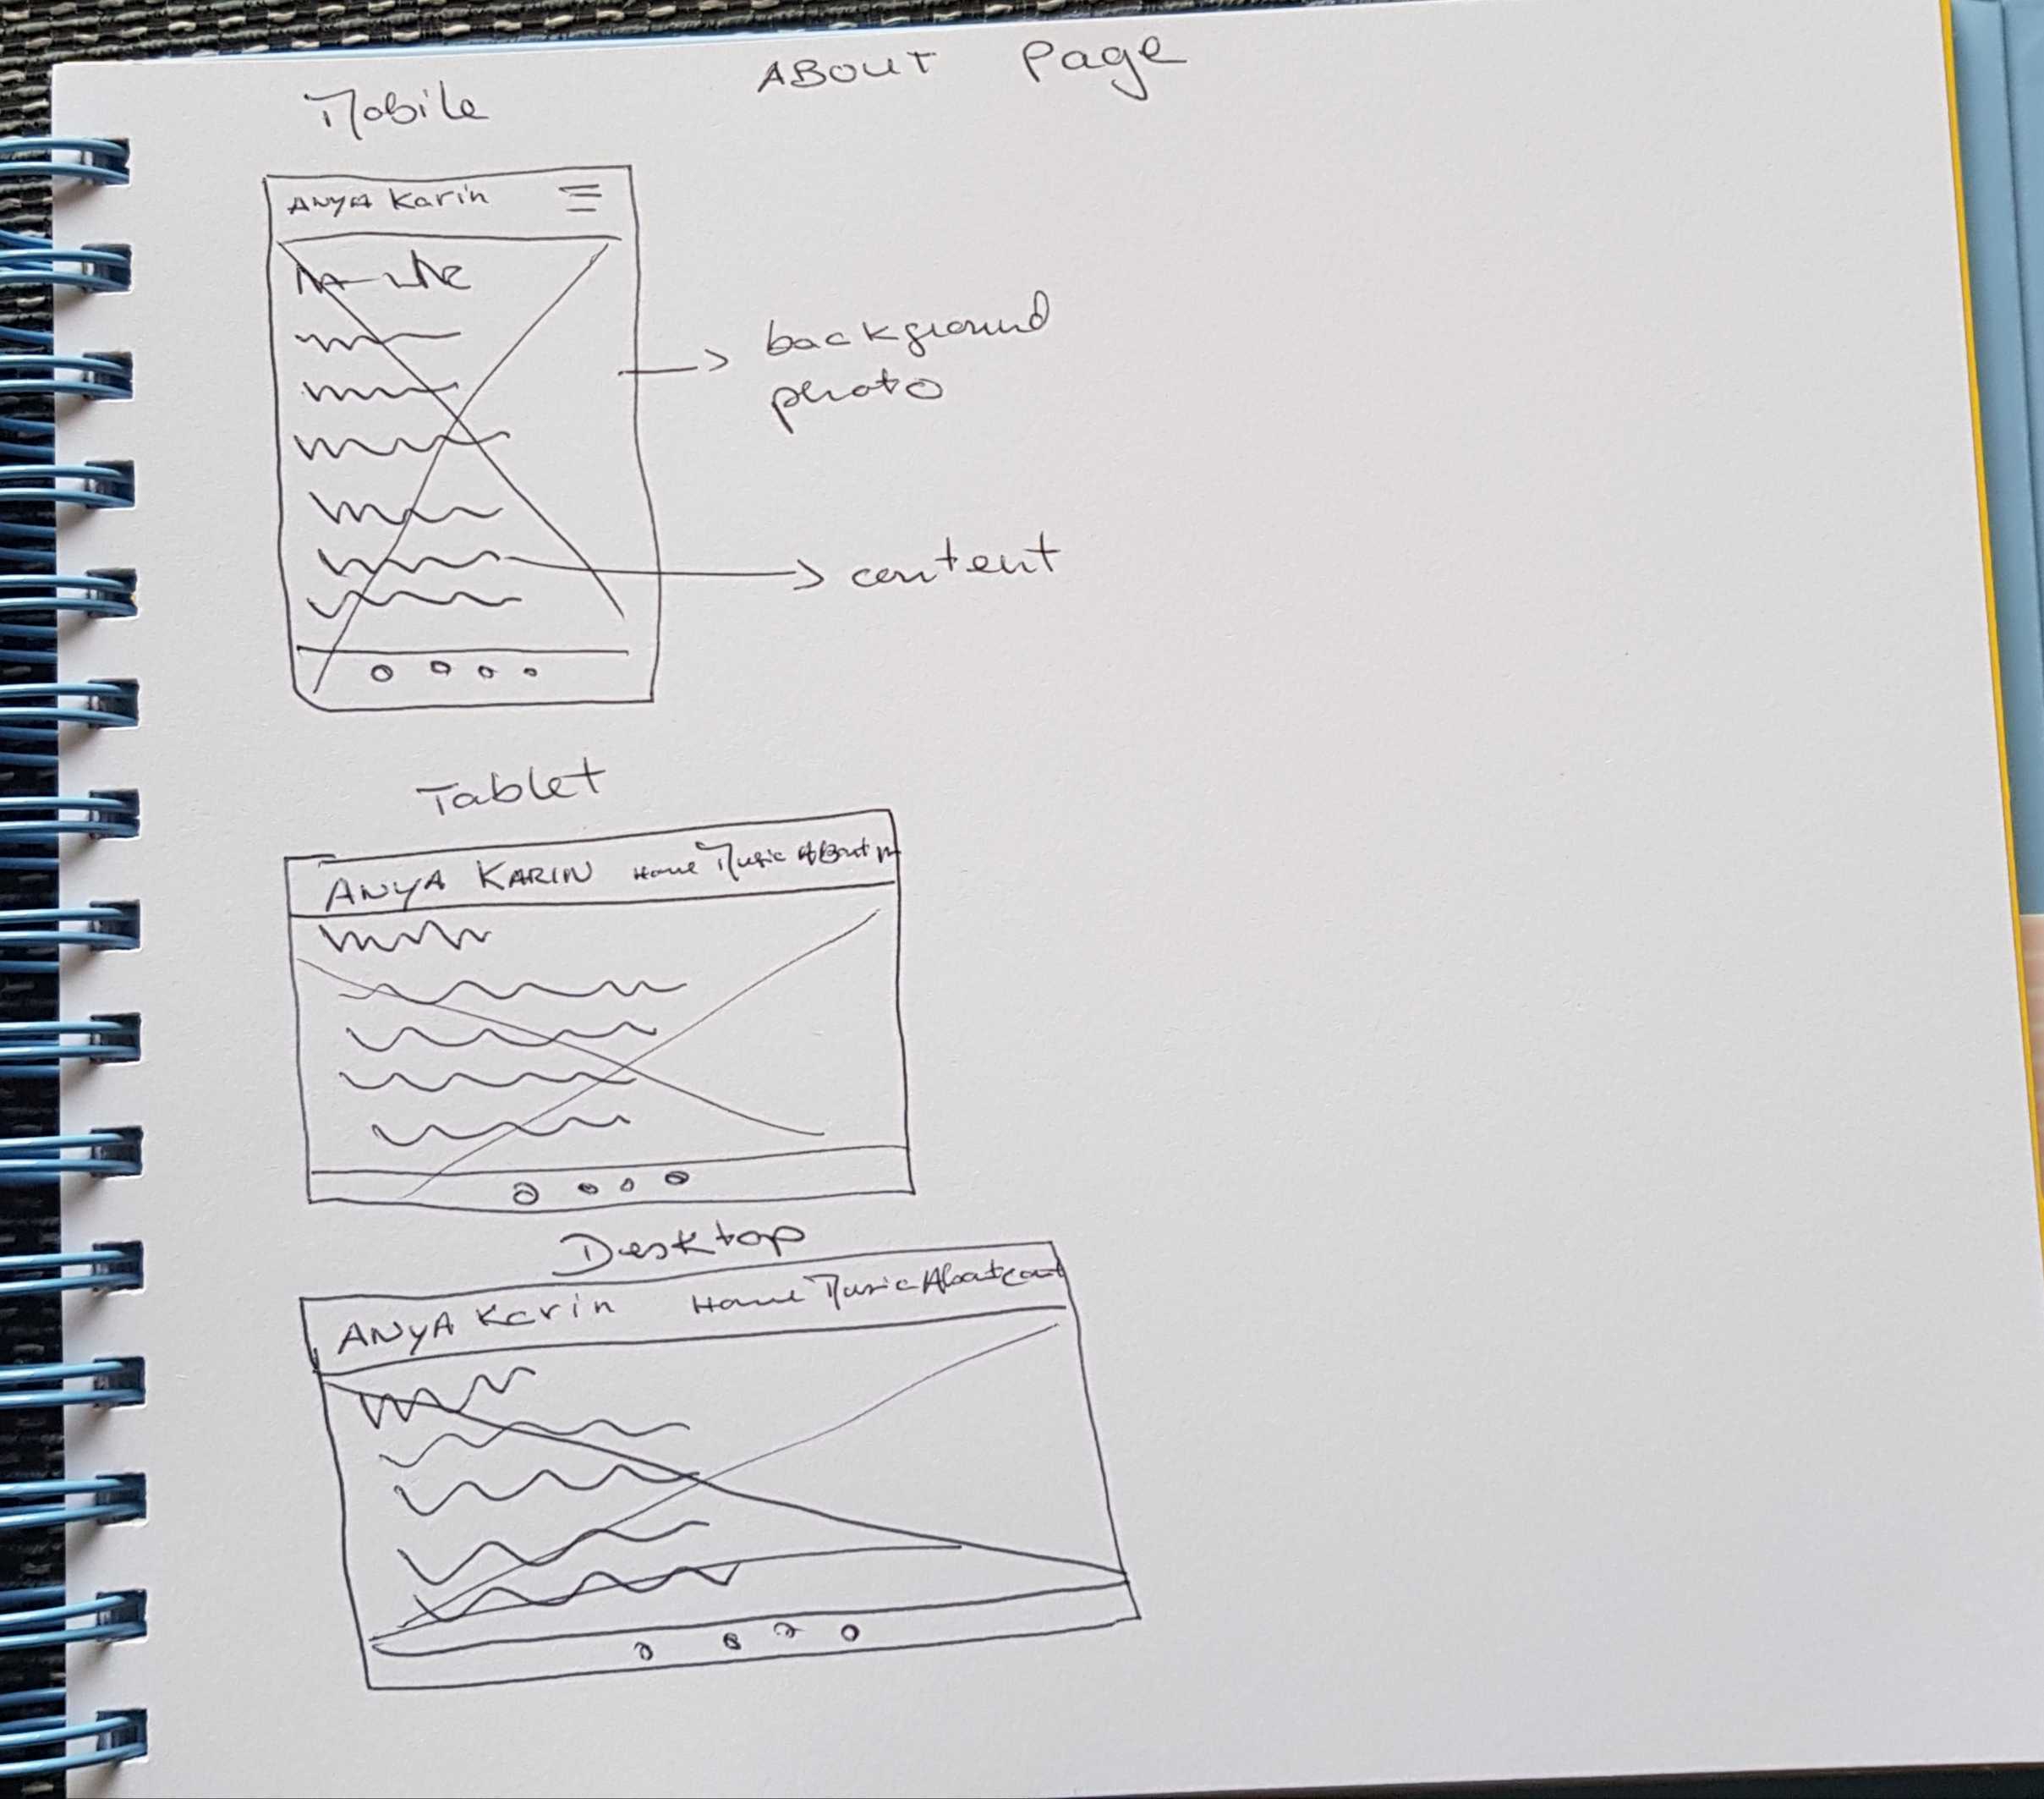 ABOUT Page
Mobile
ANYA Karin
background
photo
content
Tablet
ANYA KARIN Home Music About
Desktop
ANYA Karin Home Music About cont